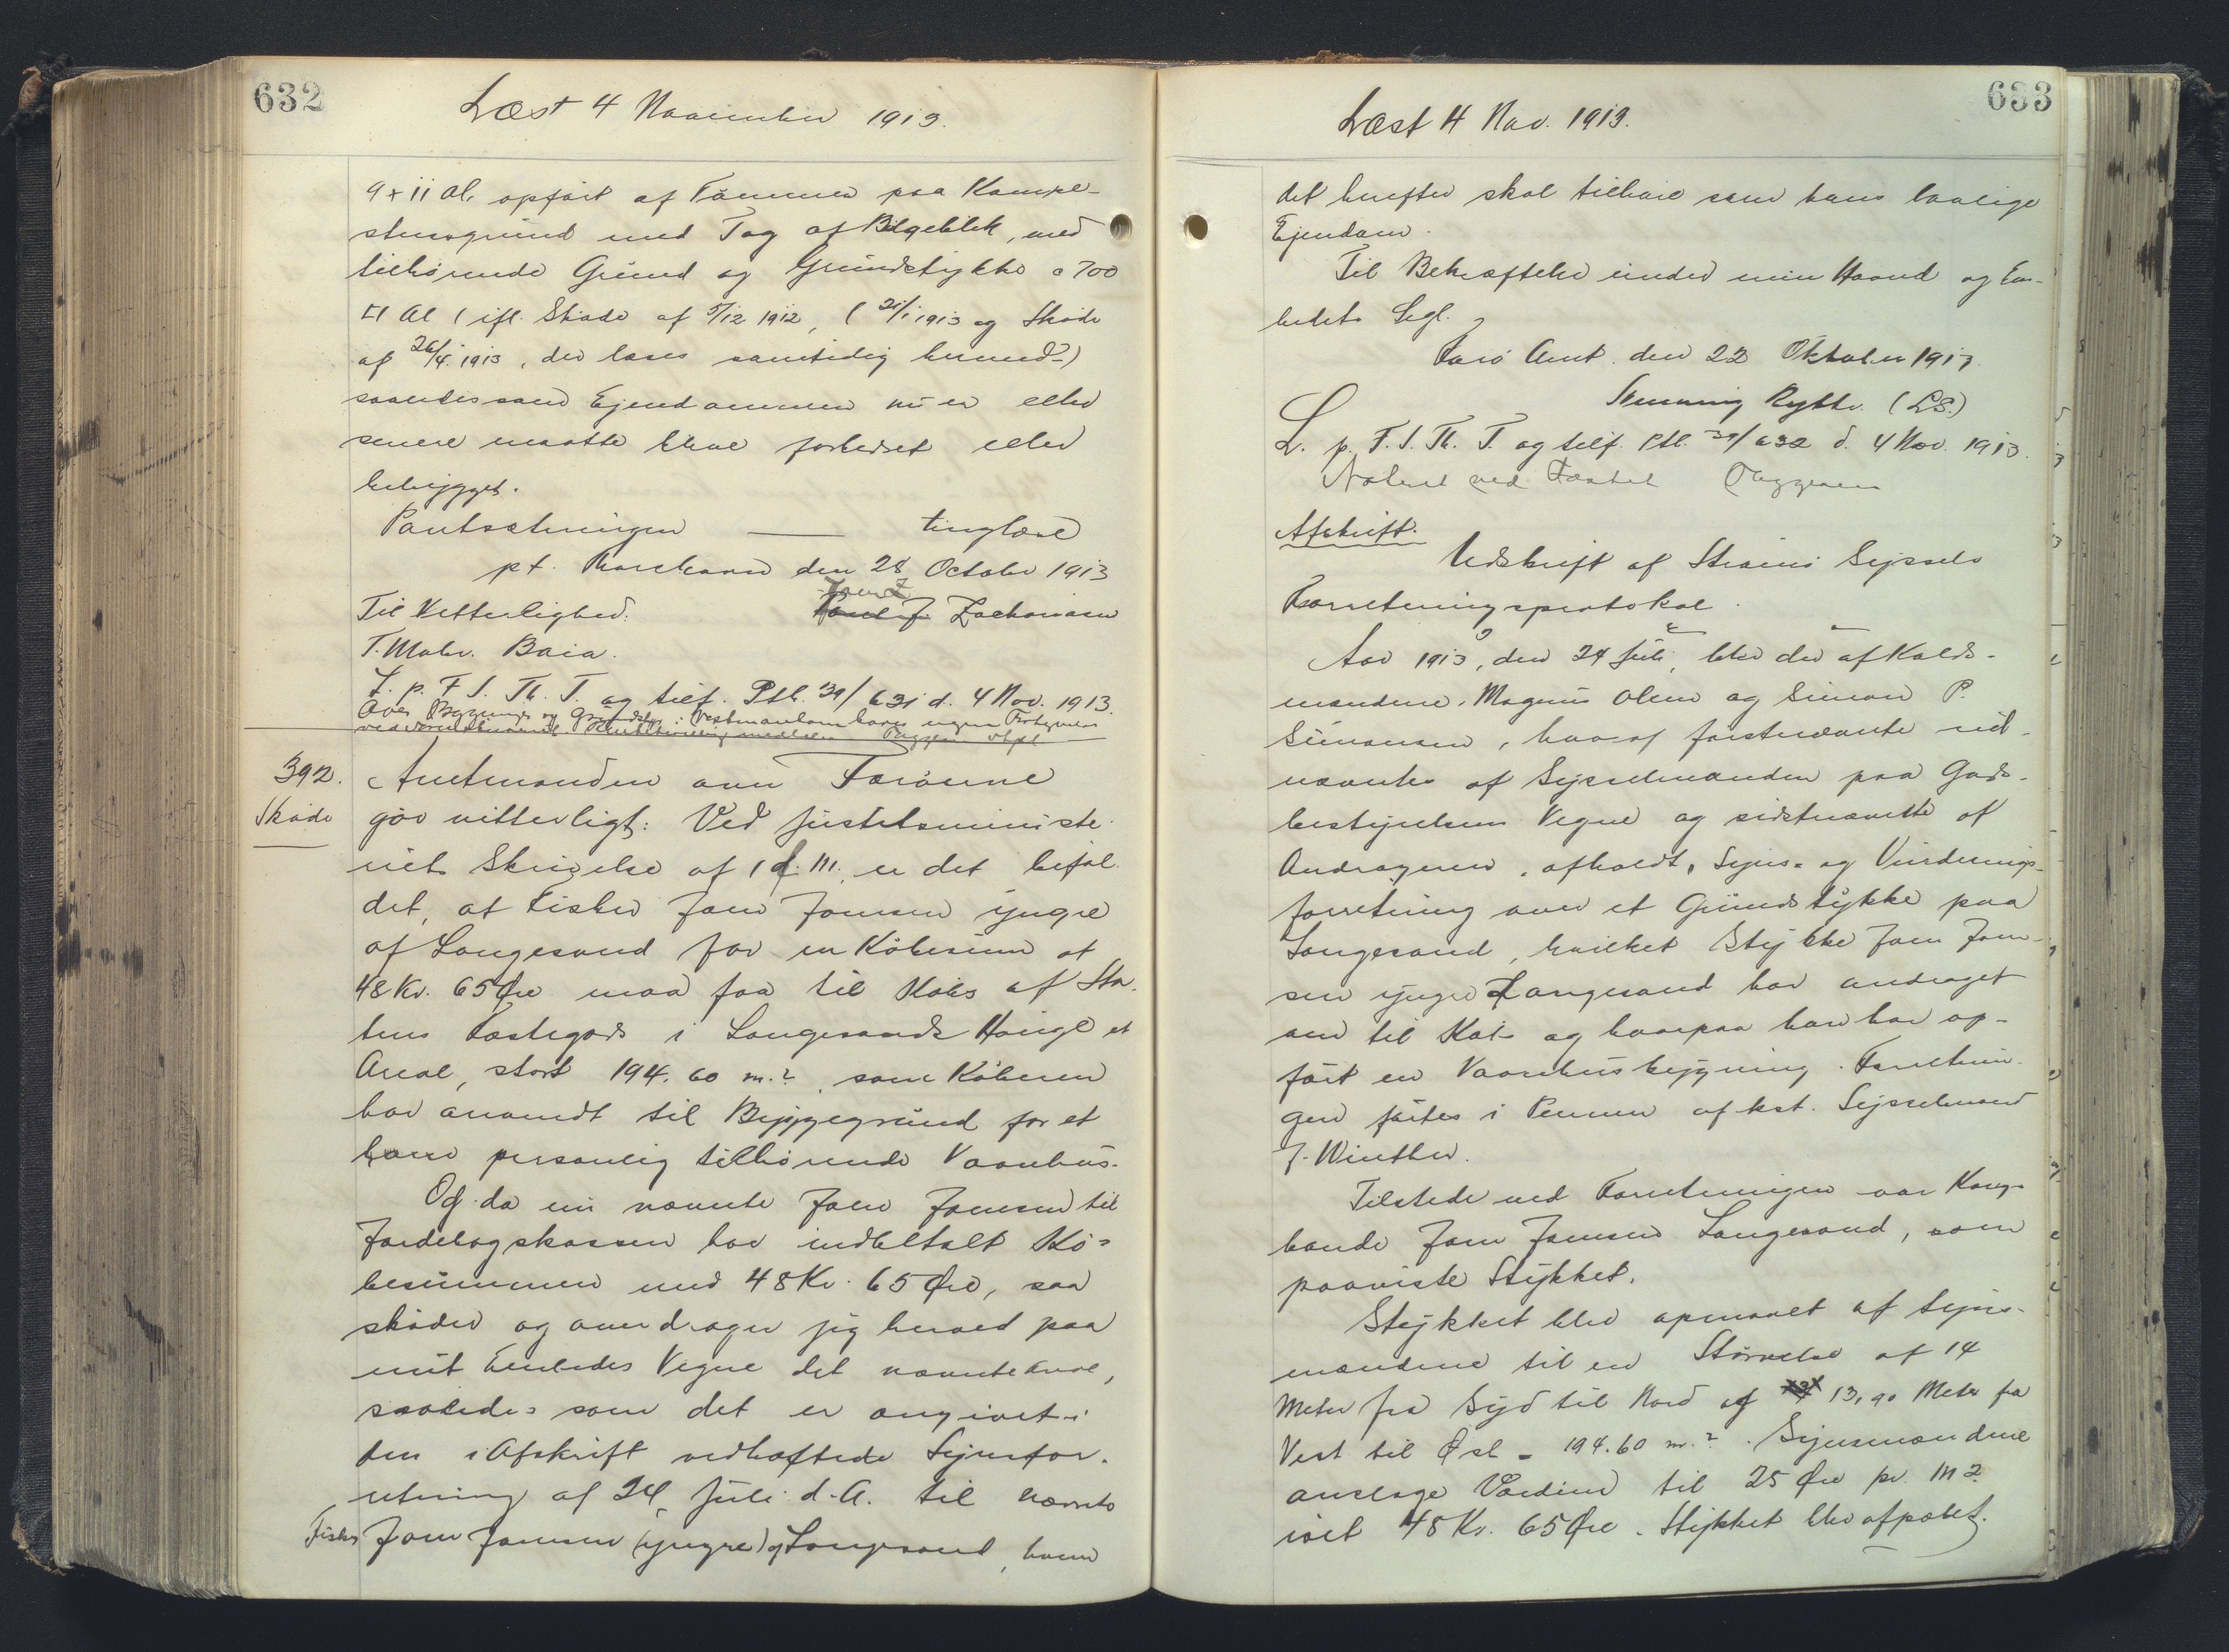 632
Læst 4 November 1913.
9 x 11 Al. opført af Tømmer paa Kampe-
stensgrund med Tag af Bølgeblik, med
tilhørende Grund og Grundstykke a 700
□ Al (ifl. Skøde af 5/12 1912, (21/1 1913 og Skøde
af 26/4 1913, der læses samtidig hermed)
saaledes som Ejendommen nu er eller
senere maatte blive forbedret eller
bebygget.
Pantsætningen —— tinglæse
pt. Thorshavn den 28 October 1913
Til Vitterlighed. Zachariasen
T. Mohr. Baia.
L. p. F. S. Th. T. og tilf. Ptl. 39/631 d. 4 Nov. 1913.
Over Bygning og Grundstk. i Vestmanhavn haves ingen
392.
Skøde
Amtmanden over Færøerne
gør vitterligt: Ved Justitsministe-
riets Skrivelse af 1 d. M. er det befal
det, at Fisker Joen Joensen yngre
af Langesand for en Købesum af
48 Kr. 65 Øre maa faa til Købs af Sta-
tens Fæstegods i Langesands Hauge et
Areal, stort 194.60 m.2, som Køberen
har anvendt til Byggegrund for et
ham personlig tilhørende Vaanhus.
Og da nu nævnte Joen Joensen til
Jordebogskassen har indbetalt Kø-
besummen med 48 Kr. 65 Øre, saa
skøder og overdrager jeg herved paa
mit Embedes Vegne det nævnte Areal,
saaledes som det er angivet i
den i Afskrift vedhæftede Synsfor-
retning af 24 Juli d. A. til nævnte
Fisker Joen Joensen (yngre) af Langesand, hvem
633
Læst 4 Nov. 1913.
det herefter skal tilhøre som hans lovlige
Ejendom.
Til Bekræftelse under min Haand og Em-
bedets Segl.
Færø Amt. den 22 Oktober 1913
Rytter. (LS.)
L. p. F. S. Th. T. og tilf. Ptl. 39/632 d. 4 Nov. 1913.
Noteret ved Fæstet
Afskrift.
Udskrift af Strømø Syssels
Forretningsprotokol.
Aar 1913, den 24 Juli, blev der af Kalds-
mændene, Magnus Olsen og Simon P.
Simonsen, hvoraf førstnævnte ud-
nævntes af Sysselmanden paa Gods-
bestyrelsens Vegne og sidstnævnte af
Andrageren, afholdt, Syns- og Vurderings-
forretning over et Grundstykke paa
Langesand, hvilket Stykke Joen Joen-
sen yngre Langesand har andraget
om til Køb og hvorpaa han har op-
ført en Vaanhusbygning. Forretnin-
gen førtes i Pennen af kst. Sysselmand
J. Winther.
Tilstede ved Forretningen var Kongs-
bonde Joen Joensen Langesand, som
paaviste Stykket.
Stykket blev opmaalt af Syns-
mændene til en Størrelse af 14
Meter fra Syd til Nord og 13,90 Meter fra
Vest til Øst = 194.60 m.2. Synsmændene
anslage Værdien til 25 Øre pr. M2
ialt 48 Kr. 65 Øre. Stykket blev afpælet.